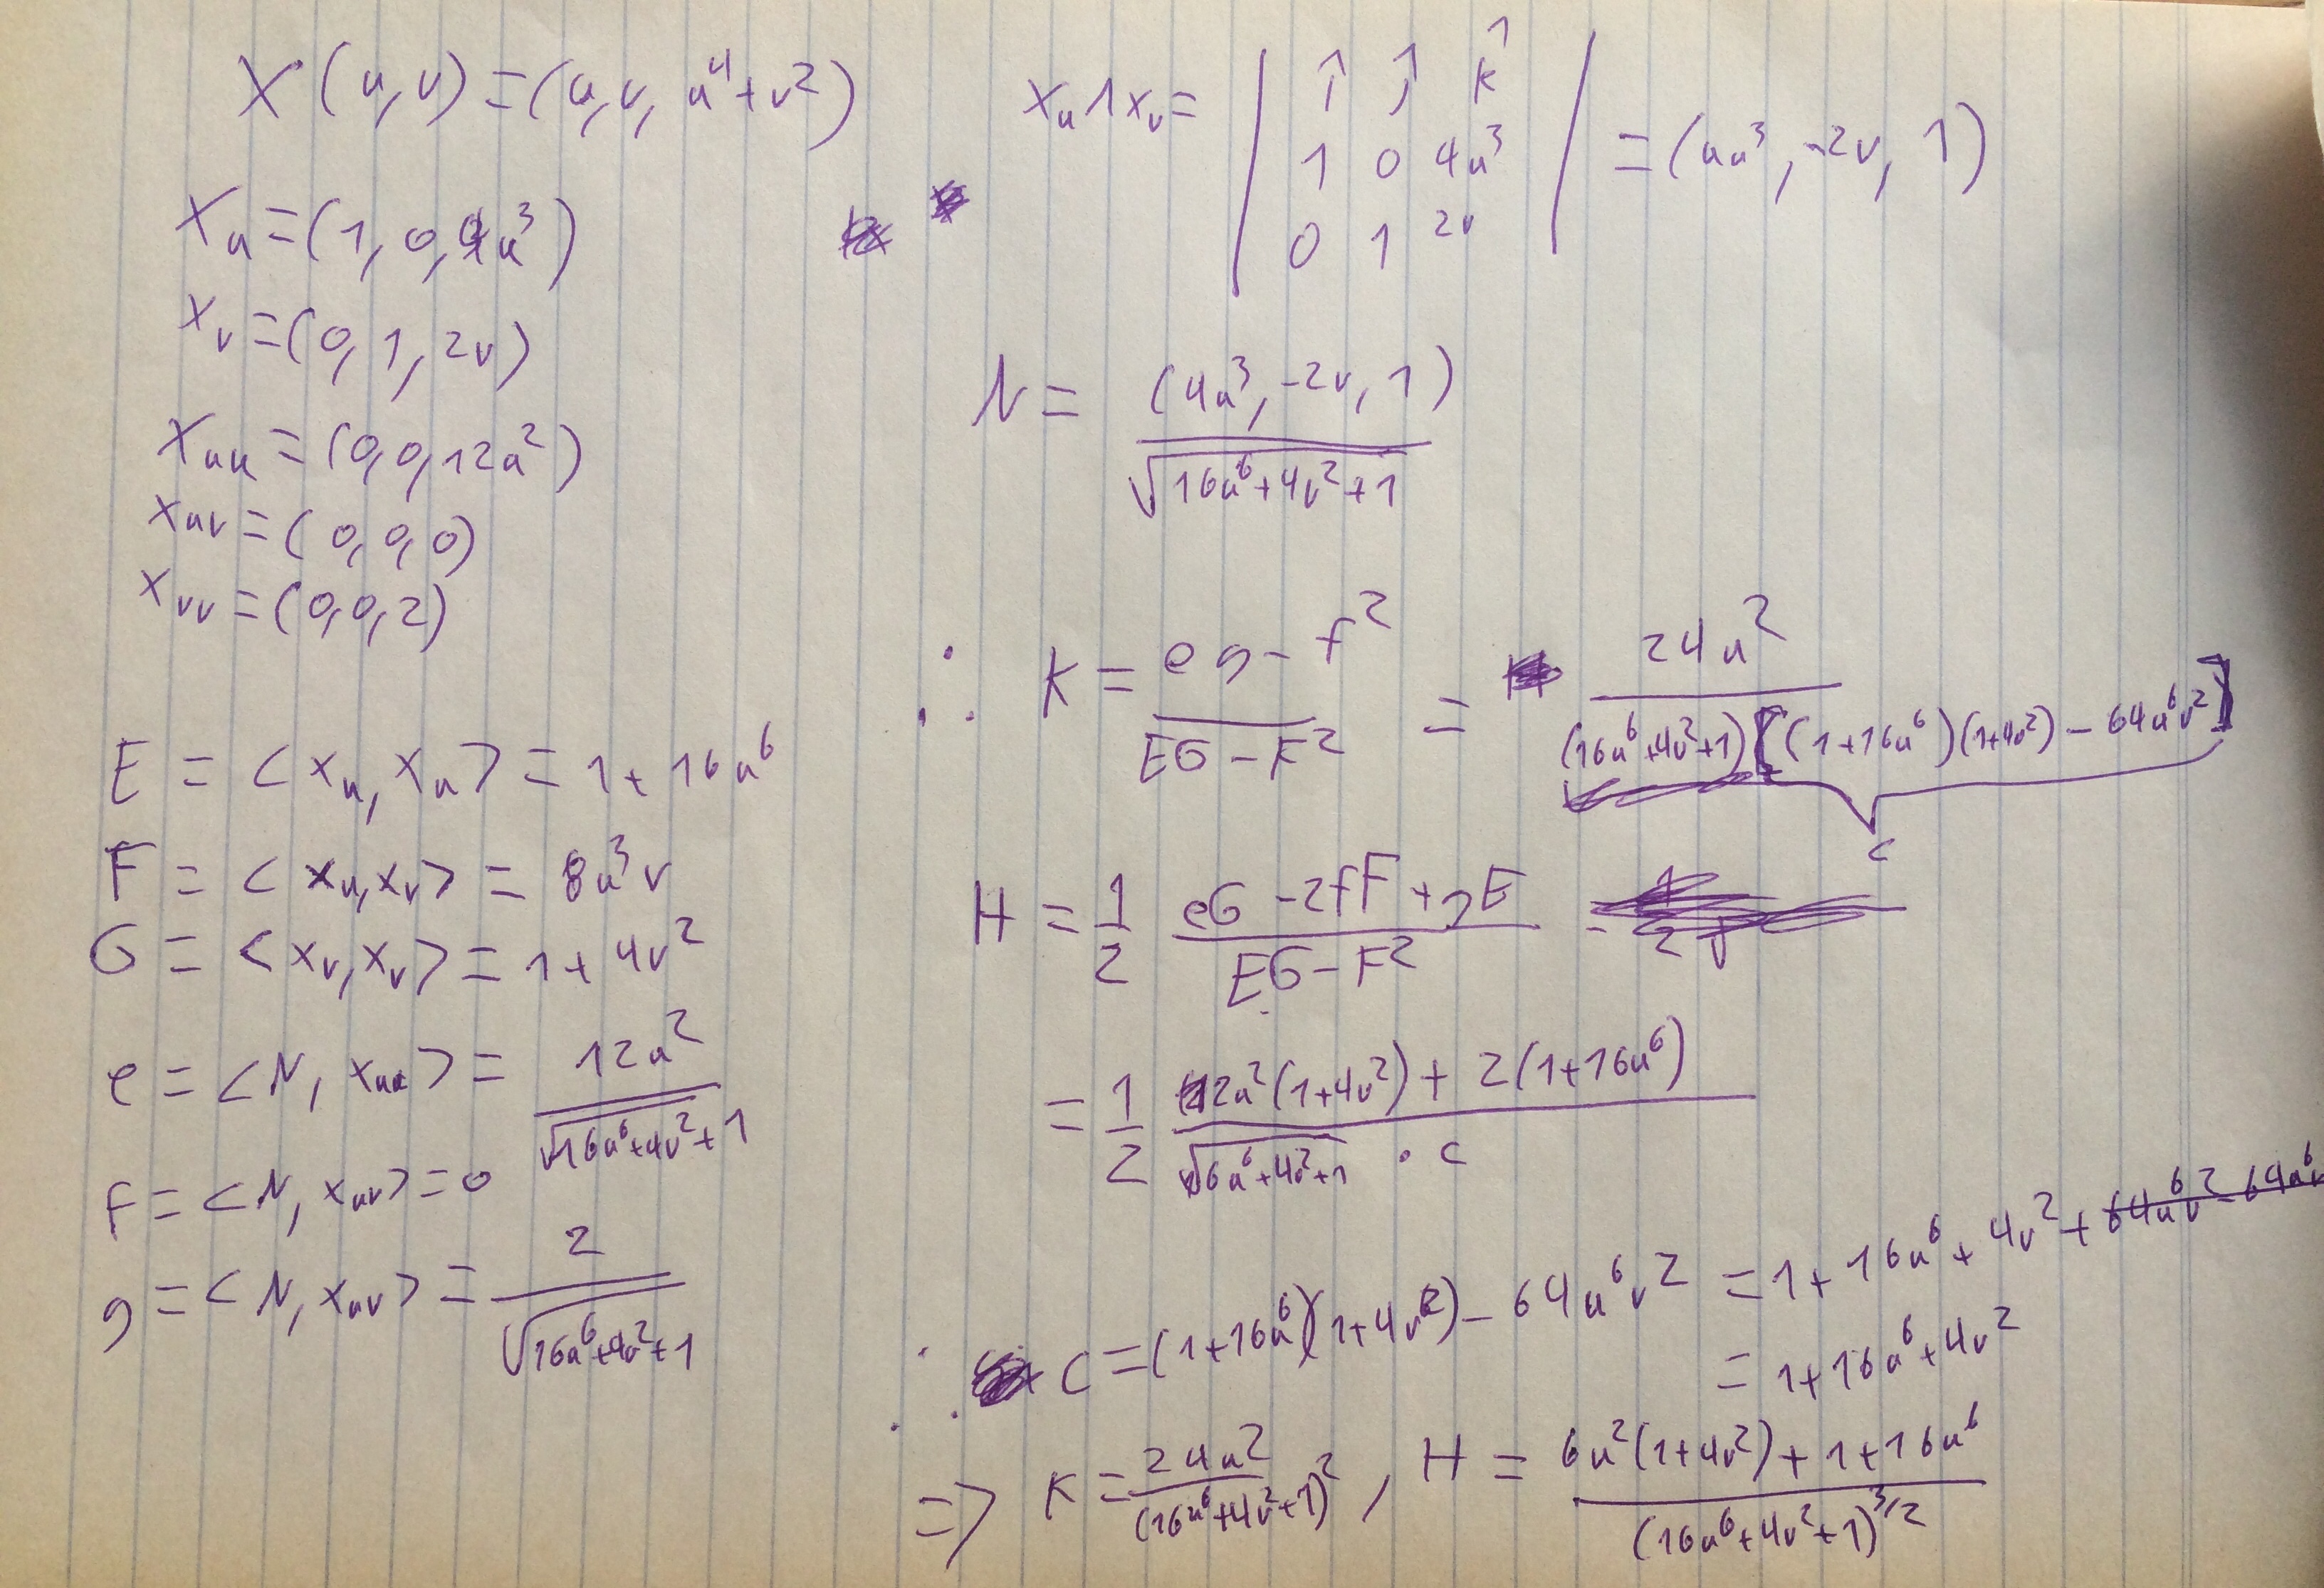 X(u,v) = (u,v, u⁴+v²)
Xu = (1, 0, 4u³)
Xv = (0, 1, 2v)
Xuu = (0,0,12u²)
Xuv = (0,0,0)
Xvv = (0,0,2)
E = <Xu, Xu> = 1 + 16u⁶
F = <Xu,Xv> = 8u³v
G = <Xv,Xv> = 1 + 4v²
e = <N, Xuu> = 12u² / √(16u⁶+4v²+1)
f = <N, Xuv> = 0
g = <N, Xuv> = 2 / √(16u⁶+4v²+1)
Xu ∧ Xv = | î ĵ k̂
1 0 4u³
0 1 2v | = (4u³, -2v, 1)
N = (4u³, -2v, 1) / √(16u⁶+4v²+1)
∴ K = (eg - f²) / (EG - F²) = 24u² / (16u⁶+4v²+1)[(1+16u⁶)(1+4v²) - 64u⁶v²]
c
H = 1/2 (eG - 2fF + gE) / (EG - F²)
= 1/2 (12u²(1+4v²) + 2(1+16u⁶)) / (√(16u⁶+4v²+1) · c)
∴ c = (1+16u⁶)(1+4v²) - 64u⁶v² = 1 + 16u⁶ + 4v² + 64u⁶v² - 64u⁶v
= 1+16u⁶+4v²
=> K = 24u² / (16u⁶+4v²+1)², H = (6u²(1+4v²) + 1+16u⁶) / (16u⁶+4v²+1)^3/2